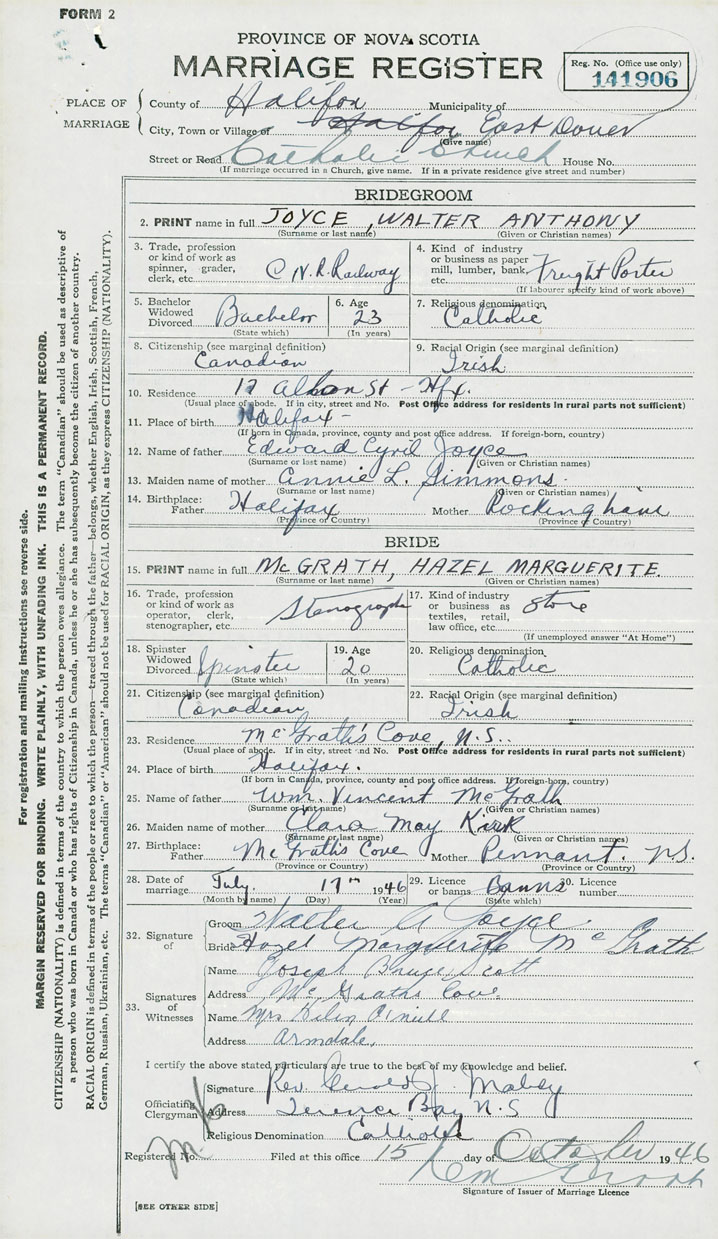 FORM 2
PROVINCE OF NOVA SCOTIA
MARRIAGE REGISTER
Reg. No. (Office use only)
141906
PLACE OF MARRIAGE
County of Halifax Municipality of
City, Town or Village of Halifax East Dover
(Give name)
Street or Road Catholic Church House No.
(If marriage occurred in a Church, give name. If in a private residence give street and number)
BRIDEGROOM
2. PRINT name in full JOYCE, WALTER ANTHONY
(Surname or last name) (Given or Christian names)
3. Trade, profession or kind of work as spinner, grader, clerk, etc. C.N.R. Railway
4. Kind of industry or business as paper mill, lumber, bank, etc. Freight Porter
(If labourer specify kind of work above)
5. Bachelor Widowed Divorced Bachelor
(State which)
6. Age 23
(In years)
7. Religious denomination Catholic
8. Citizenship (see marginal definition) Canadian
9. Racial Origin (see marginal definition) Irish
10. Residence 17 St - Hfx.
(Usual place of abode. If in city, street and No. Post Office address for residents in rural parts not sufficient)
11. Place of birth Halifax -
(If born in Canada, province, county and post office address. If foreign-born, country)
12. Name of father Edward Cyril Joyce
(Surname or last name) (Given or Christian names)
13. Maiden name of mother Annie L. Simmons.
(Surname or last name) (Given or Christian names)
14. Birthplace: Father Halifax Mother Rockingham
(Province or Country) (Province or Country)
BRIDE
15. PRINT name in full McGRATH, HAZEL MARGUERITE.
(Surname or last name) (Given or Christian names)
16. Trade, profession or kind of work as operator, clerk, stenographer, etc. Stenographer
17. Kind of industry or business as textiles, retail, law office, etc. Store
(If unemployed answer "At Home")
18. Spinster Widowed Divorced Spinster
(State which)
19. Age 20
(In years)
20. Religious denomination Catholic
21. Citizenship (see marginal definition) Canadian
22. Racial Origin (see marginal definition) Irish
23. Residence McGrath's Cove, N.S.
(Usual place of abode. If in city, street and No. Post Office address for residents in rural parts not sufficient)
24. Place of birth Halifax.
(If born in Canada, province, county and post office address. If foreign-born, country)
25. Name of father Wm. Vincent McGrath
(Surname or last name) (Given or Christian names)
26. Maiden name of mother Clara May Kirk
(Surname or last name) (Given or Christian names)
27. Birthplace: Father McGrath's Cove Mother Pennant. N.S.
(Province or Country) (Province or Country)
28. Date of marriage July. 17th 1946
(Month by name) (Day) (Year)
29. Licence or banns Banns
(State which)
30. Licence number
32. Signature of
Groom Walter A Joyce.
Bride Hazel Marguerite McGrath
33. Signatures of Witnesses
Name Joseph Bruce Scott
Address McGraths Cove.
Name Mrs
Address Armdale.
I certify the above stated particulars are true to the best of my knowledge and belief.
Officiating Clergyman
Signature Rev.
Address Terence Bay N.S
Religious Denomination Catholic
Registered No. Filed at this office 15 day of October 1946
Signature of Issuer of Marriage Licence
[SEE OTHER SIDE]
For registration and mailing instructions see reverse side.
MARGIN RESERVED FOR BINDING. WRITE PLAINLY, WITH UNFADING INK. THIS IS A PERMANENT RECORD.
CITIZENSHIP (NATIONALITY) is defined in terms of the country to which the person owes allegiance. The term "Canadian" should be used as descriptive of
a person who was born in Canada or who has rights of Citizenship in Canada, unless he or she has subsequently become the citizen of another country.
RACIAL ORIGIN is defined in terms of the people or race to which the person—traced through the father—belongs, whether English, Irish, Scottish, French,
German, Russian, Ukrainian, etc. The terms "Canadian" or "American" should not be used for RACIAL ORIGIN, as they express CITIZENSHIP (NATIONALITY).